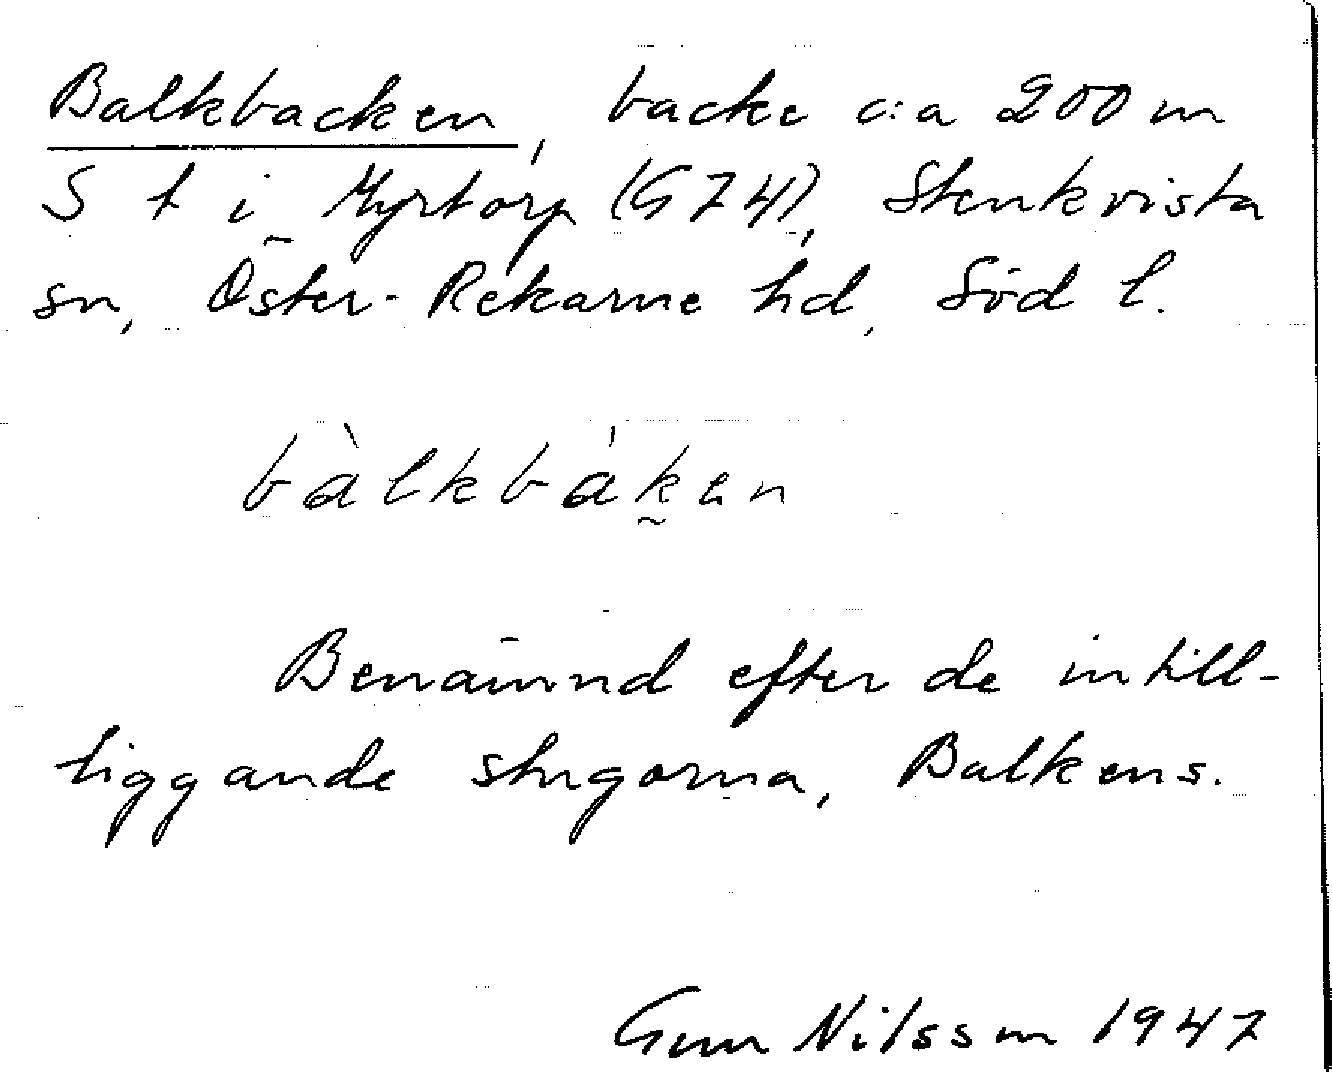 Balkbacken, backe c:a 200 m
S t i Myrtorp (G 74), Stenkvista
sn, Öster-Rekarne hd, Söd l.
bàlkbáken
Benämnd efter de intill-
liggande stugorna, Balkens.
Gun Nilsson 1947